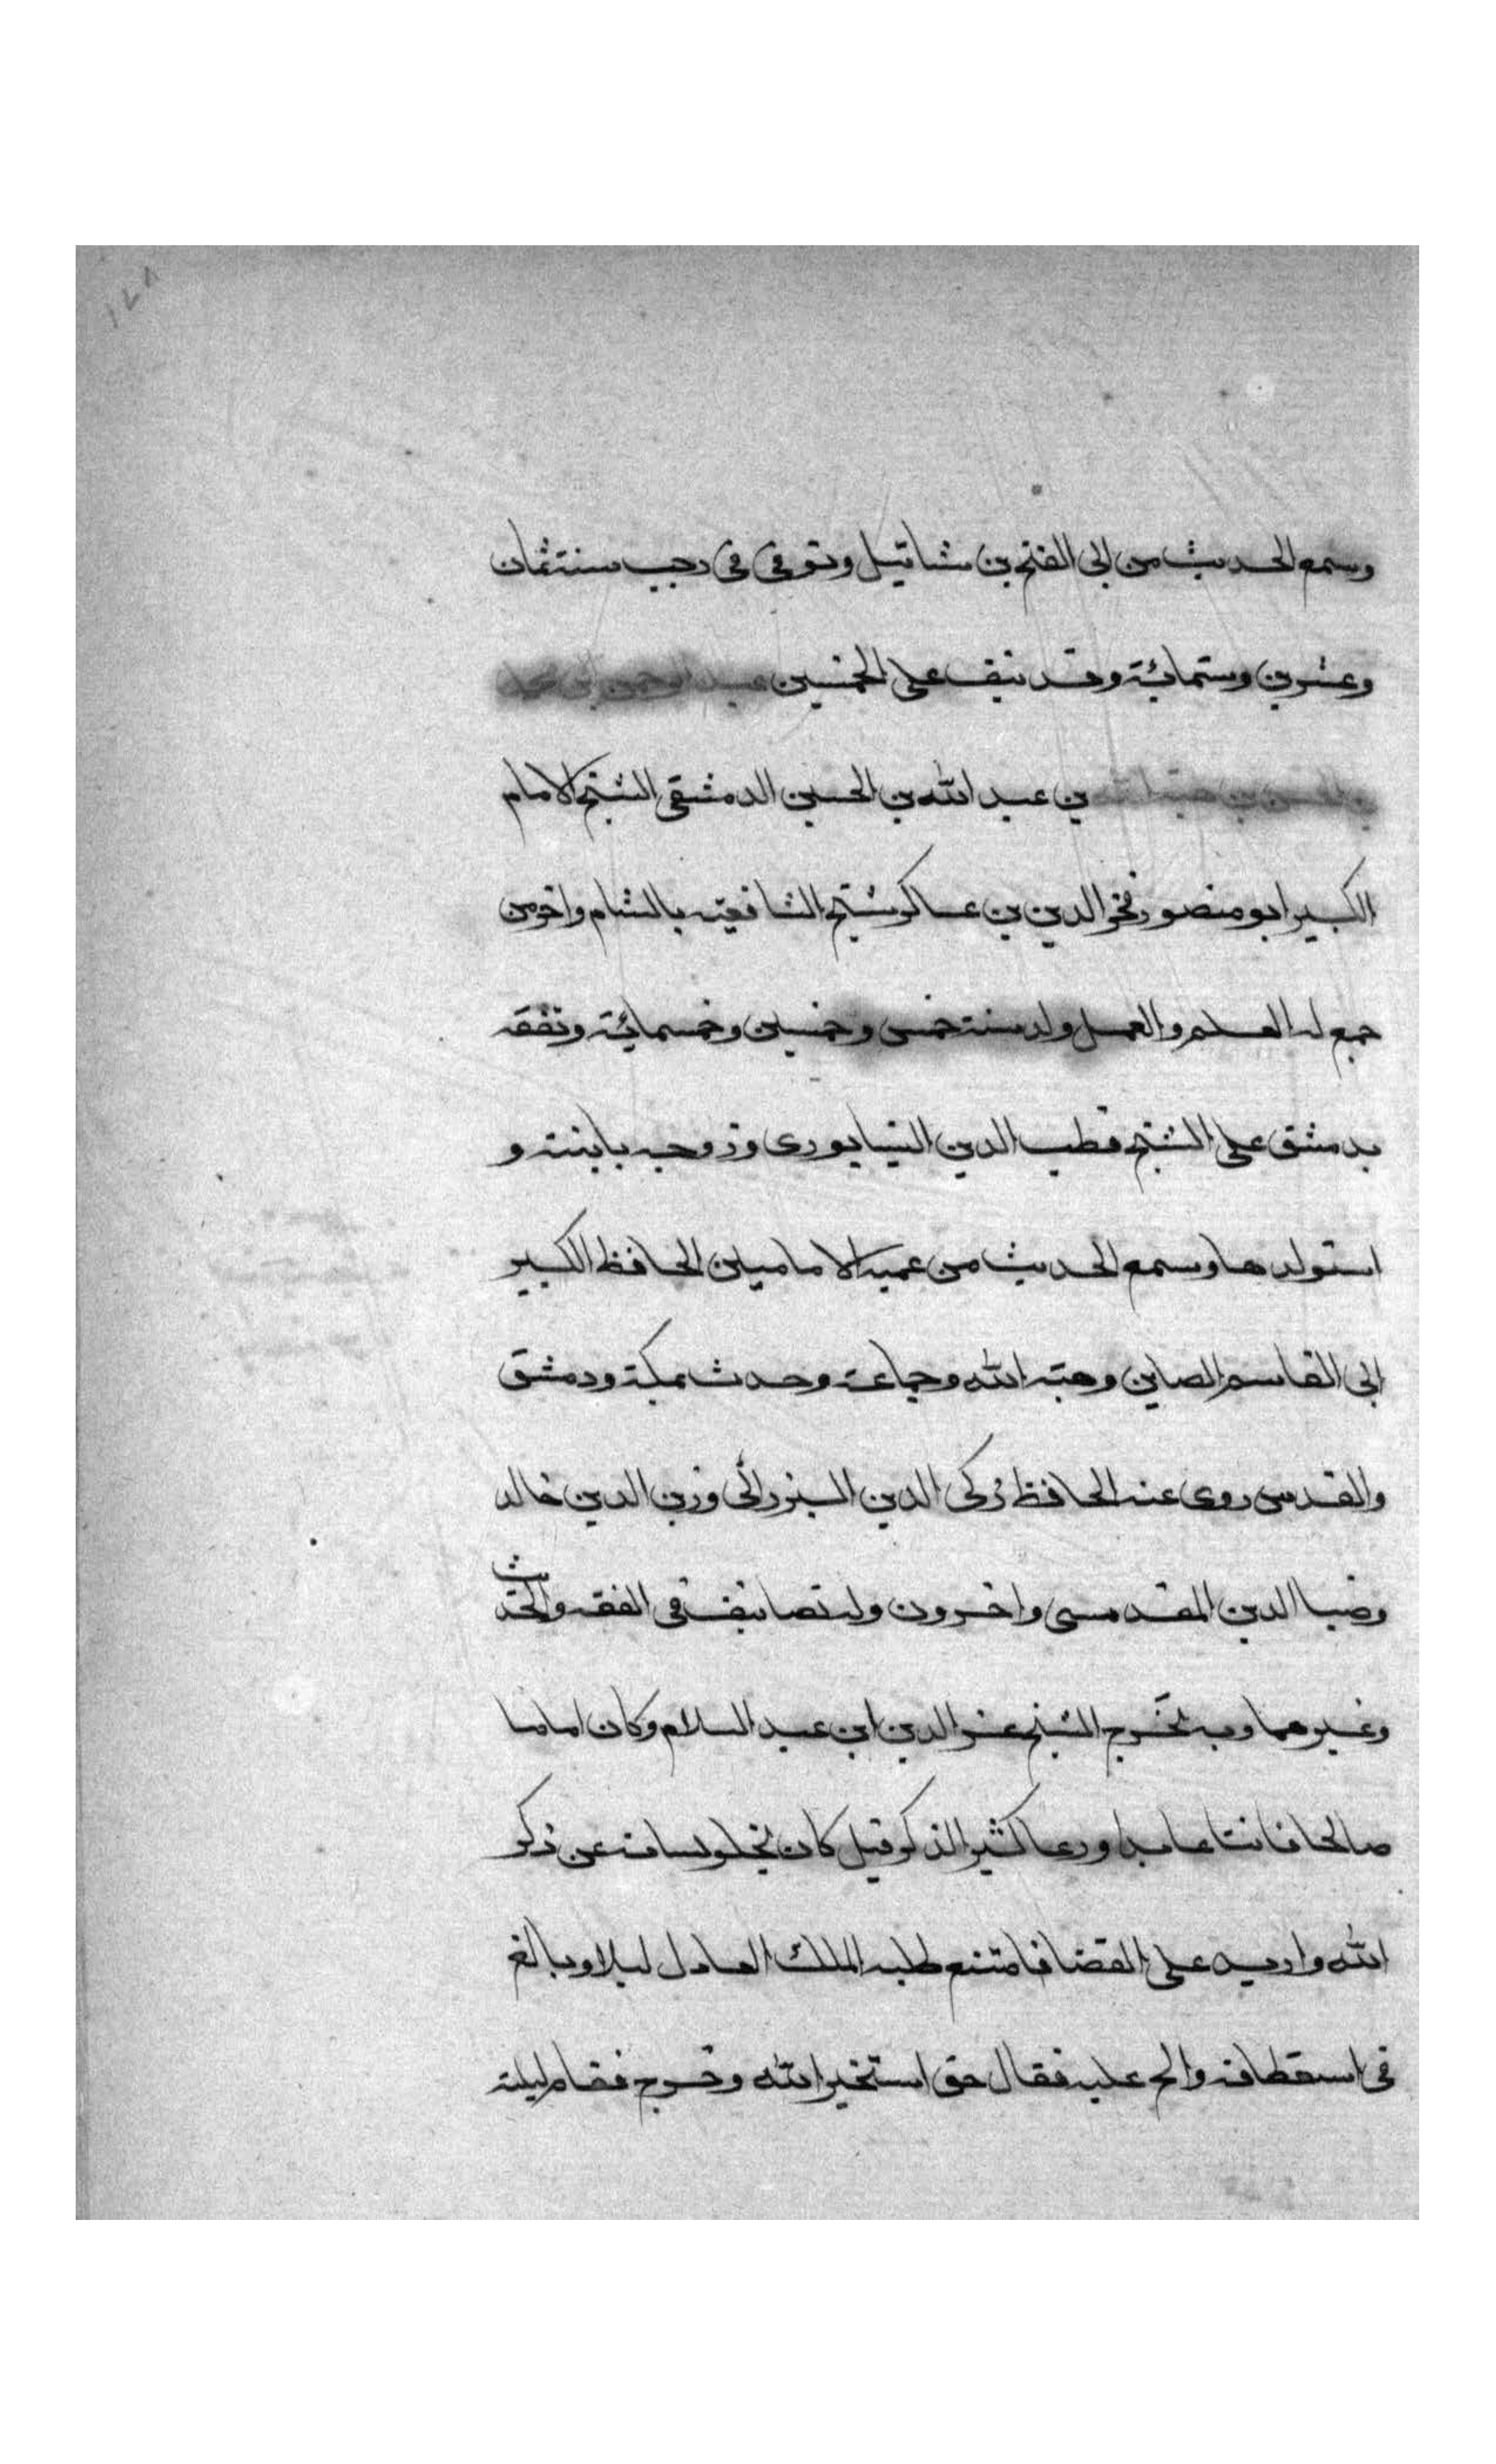 ١٢٨
وسمع الحديث من ابى الفتح بن شاتيل وتوفى فى رجب سنة ثمان
وعشرين وستمائة وقد نيف على الخمسين عبد الرحمن بن محمد
بن الحسن بن هبة الله بن عبد الله بن الحسين الدمشقى الشيخ الامام
الكبير ابو منصور فخر الدين بن عساكر شيخ الشافعية بالشام واخر من
جمع له العلم والعمل ولد سنة خمس وخمسين وخمسمائة وتفقه
بدمشق على الشيخ قطب الدين النيسابورى وزوجه بابنته و
استولدها وسمع الحديث من عميه الامامين الحافظ الكبير
ابى القاسم الصاين وهبة الله وجماعة وحدث بمكة ودمشق
والقدس روى عنه الحافظ زكى الدين البرزالى وزين الدين خالد
وضيا الدين المقدسى واخرون وله تصانيف فى الفقه والحديث
وغيرهما وبه تخرج الشيخ عز الدين ابن عبد السلام وكان اماما
صالحا قانتا عابدا ورعا كثير الذكر قيل كان لا يخلو لسانه عن ذكر
الله واريد على القضا فامتنع طلبه الملك العادل ليلا وبالغ
فى استعطافه والح عليه فقال حتى استخير الله وخرج فقام ليلته